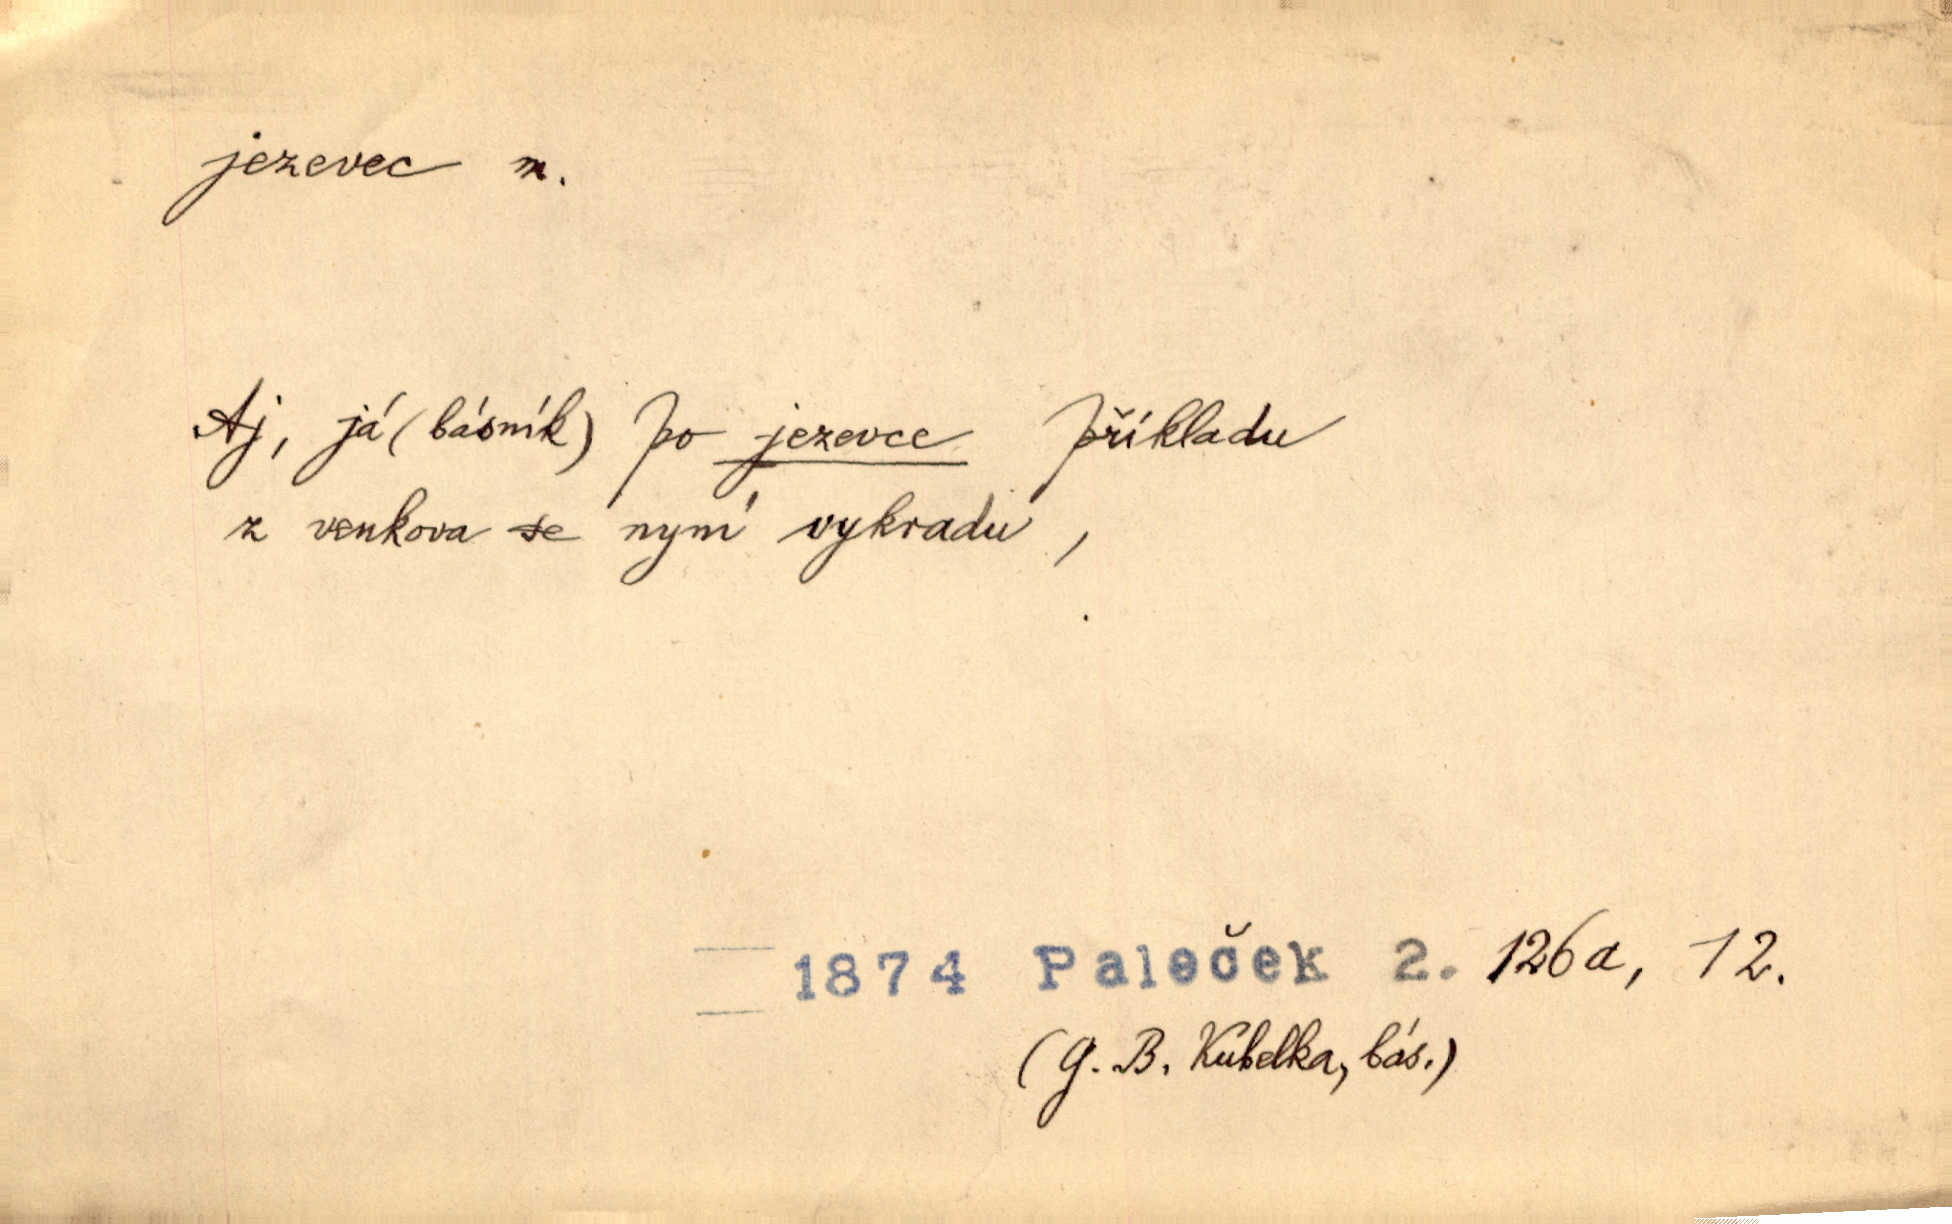 jezevec m.
Aj, já (básník) po jezevce příkladu
z venkova se nyní vykradu,
1874 Paleček 2. 126a, 12.
(G. B. Kubelka, bás.)